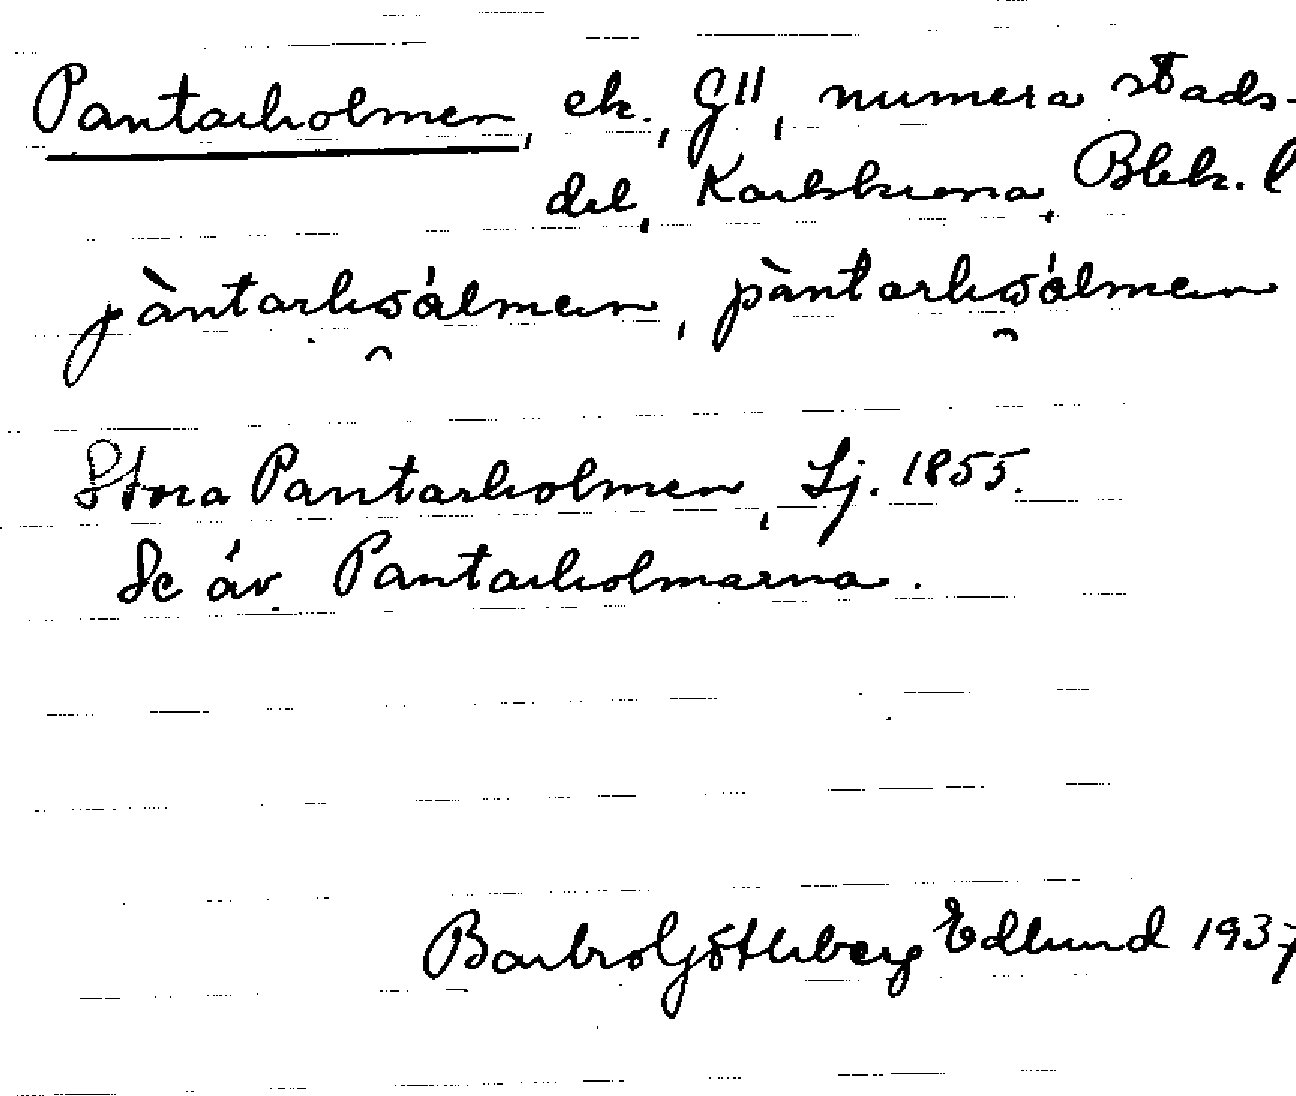 Pantarholmen, ek., G11, numera stads-
del, Karlskrona, Blek. l
pàntarhoálmen, pàntarhoálmen
Stora Pantarholmen, Lj. 1855.
Se äv. Pantarholmarna.
Barbro Götherberg Edlund 1937